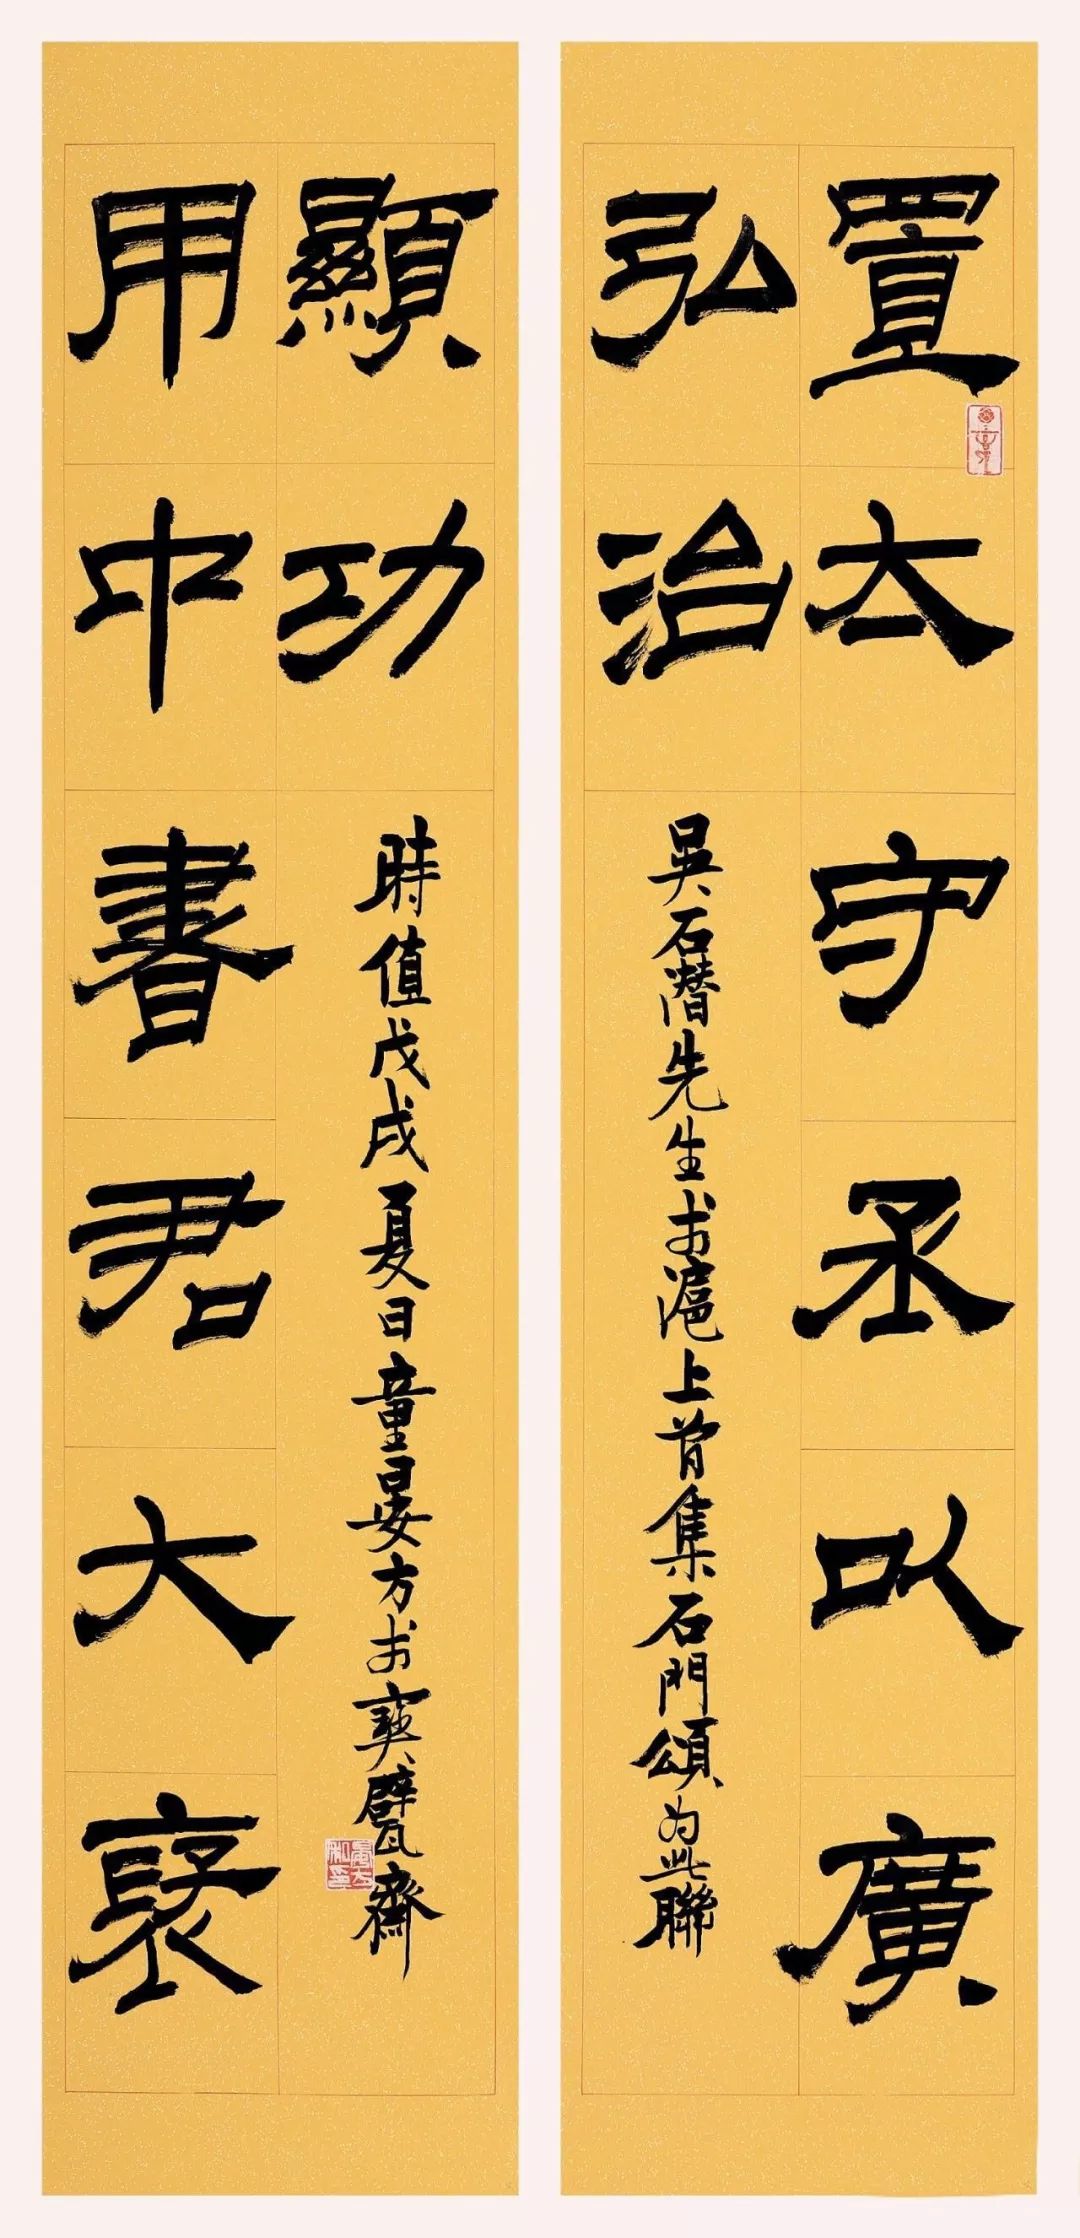 置太守丞以廣
弘治
吳石潛先生於滬上曾集石門頌为此聯
用中書君大褒
顯功
時值戊戌夏日童晏方於寶甓齋